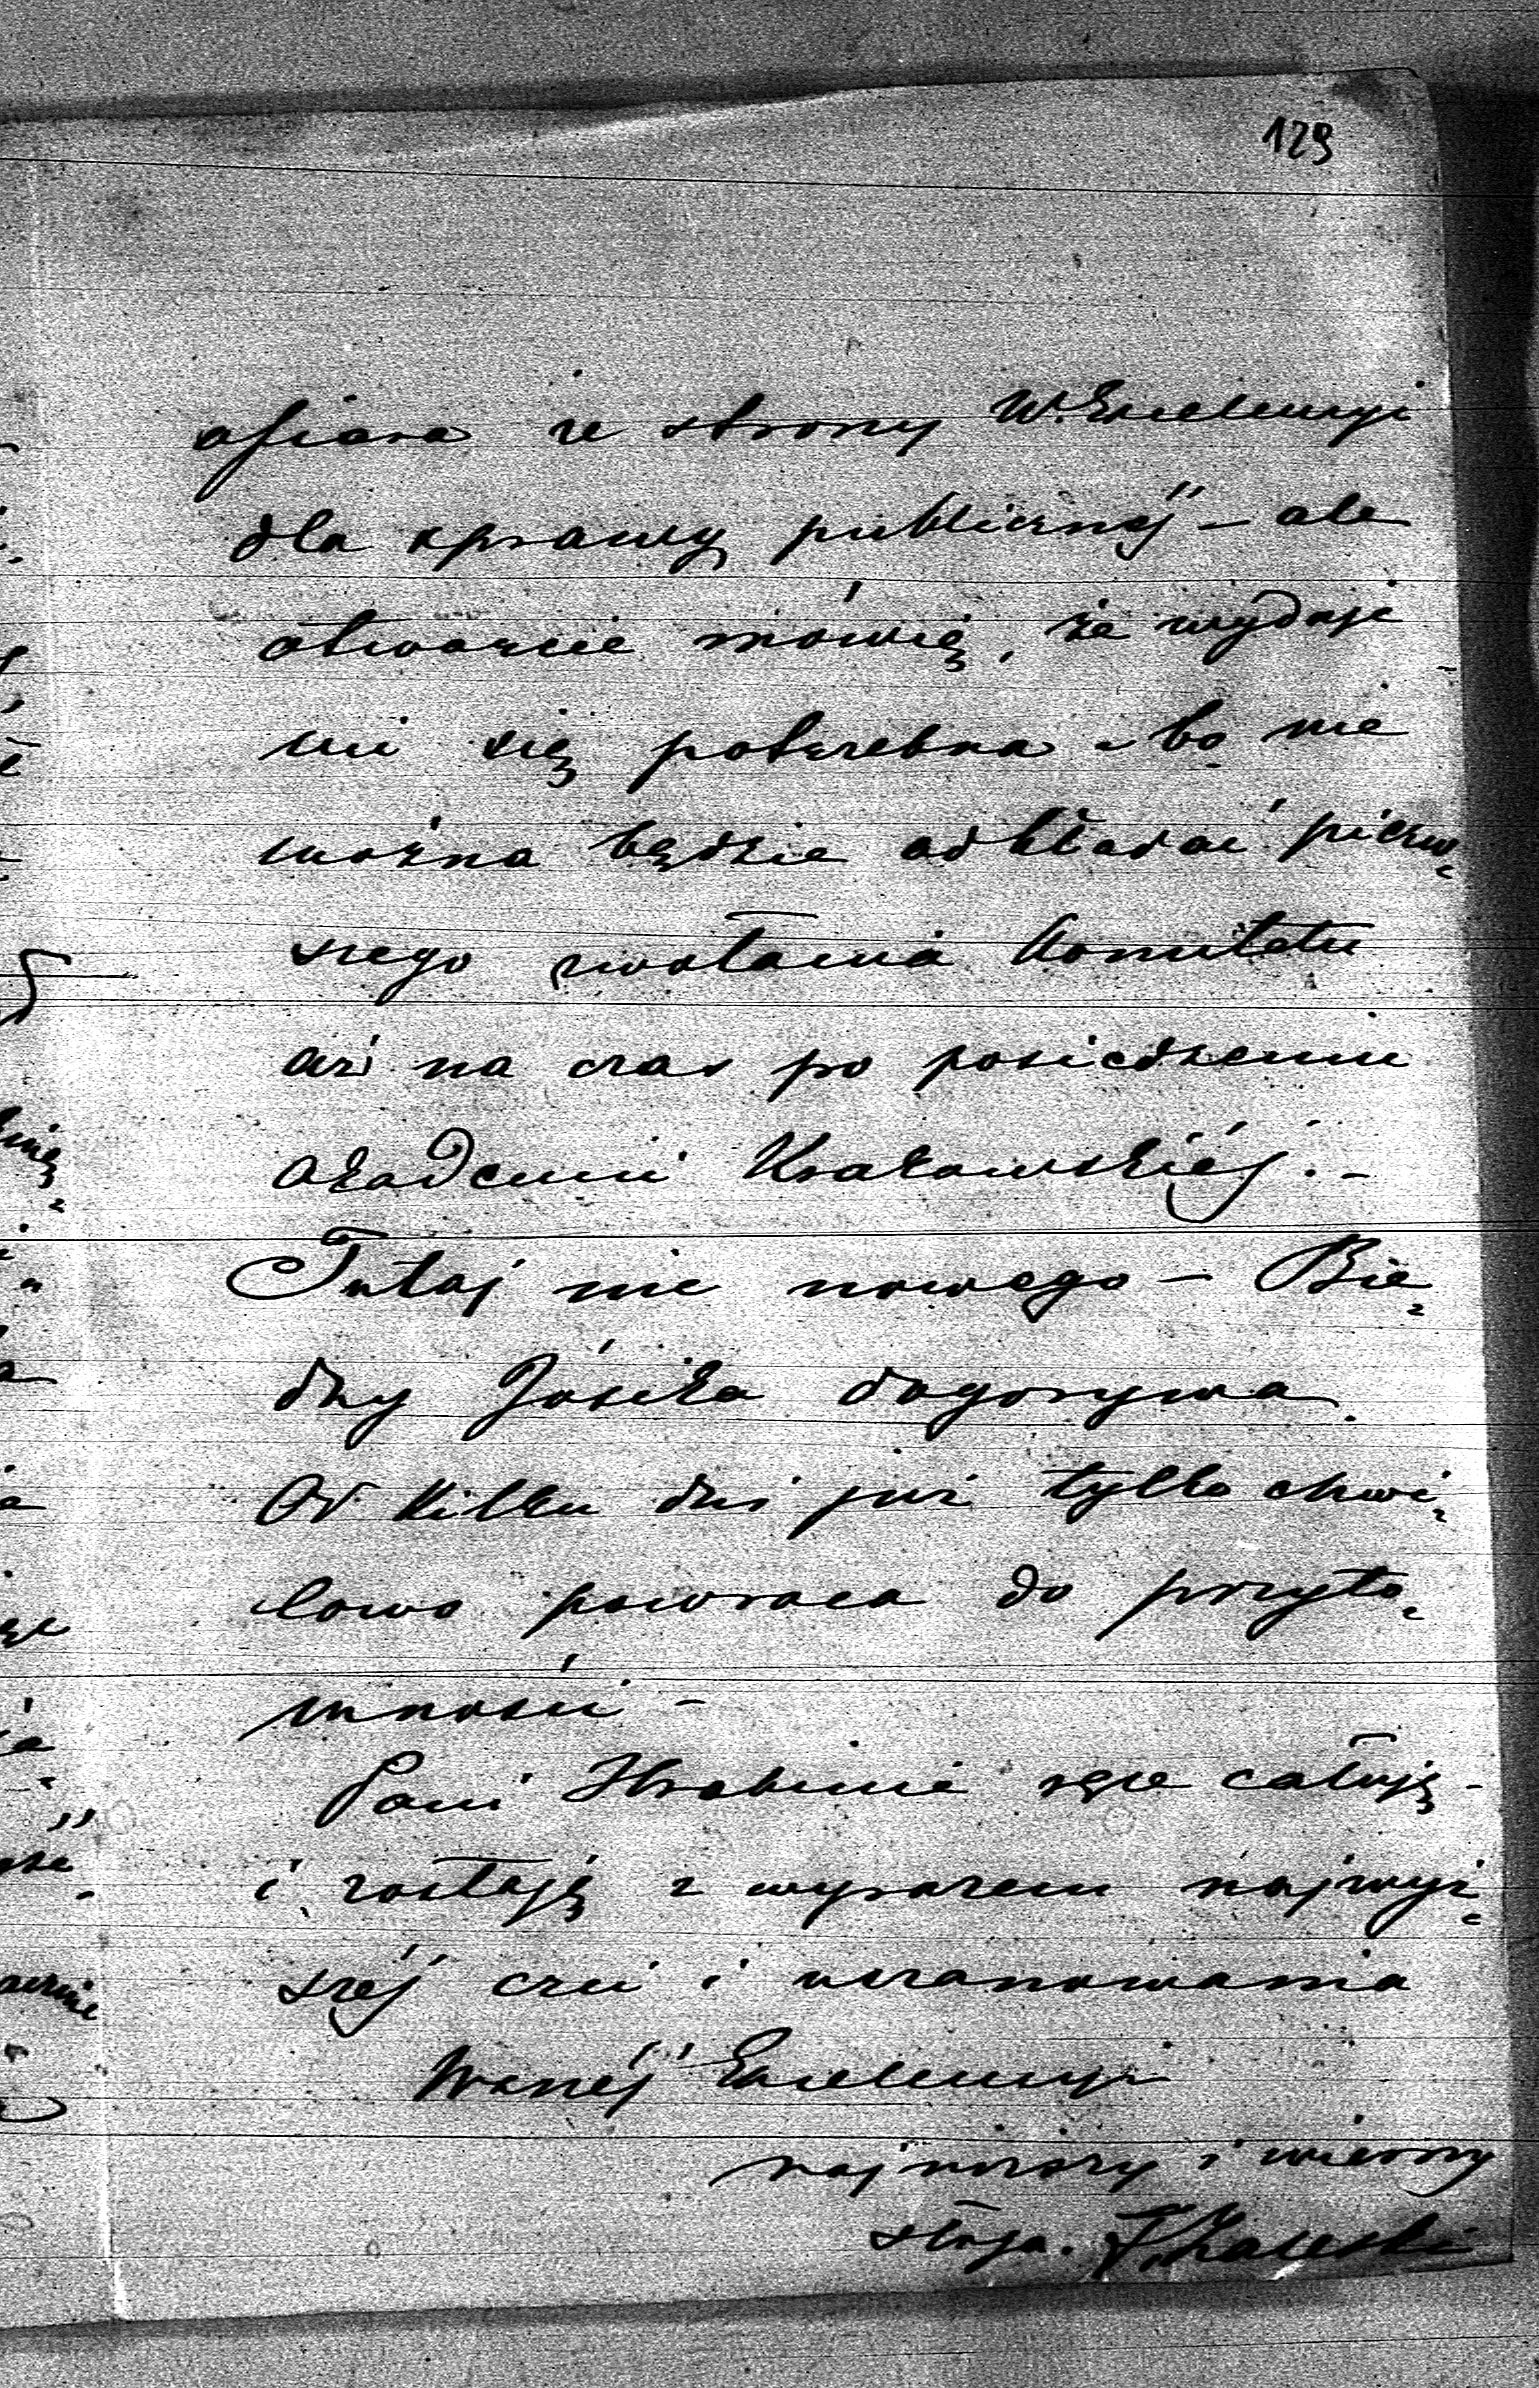 129
ofiara ze strony W. Excelencyi
dla sprawy publicznej" – ale
otwarcie mówię, że wydaje
mi się potrzebna – bo nie
można będzie odkładać pierw-
szego zwołania Komitetu
aż na czas po posiedzeniu
Akademii Krakowskiéj. –
Tutaj nic nowego – Bie-
dny Józika dogorywa.
Od kilku dni już tylko chwi-
lowo powraca do przyto-
mności –
Pani Hrabinie ręce całuję –
i zostaję z wyrazem najwyż-
széj czci i uszanowania
Waszéj Excelencyi
najniższy i wierny
sługa. F. Zaleski